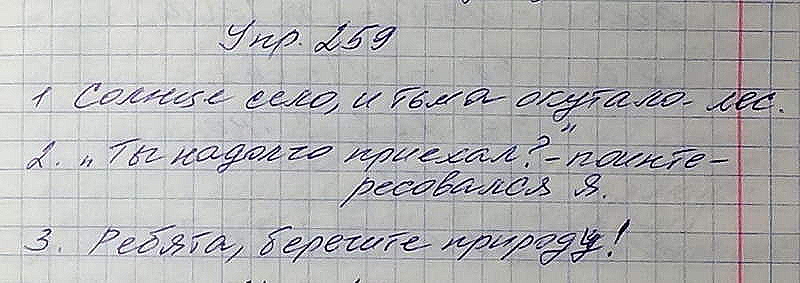 Упр. 259
1 Солнце село, и тьма окутало лес.
2. „Ты надолго приехал?" - поинте-
ресовался я.
3. Ребята, берегите природу!